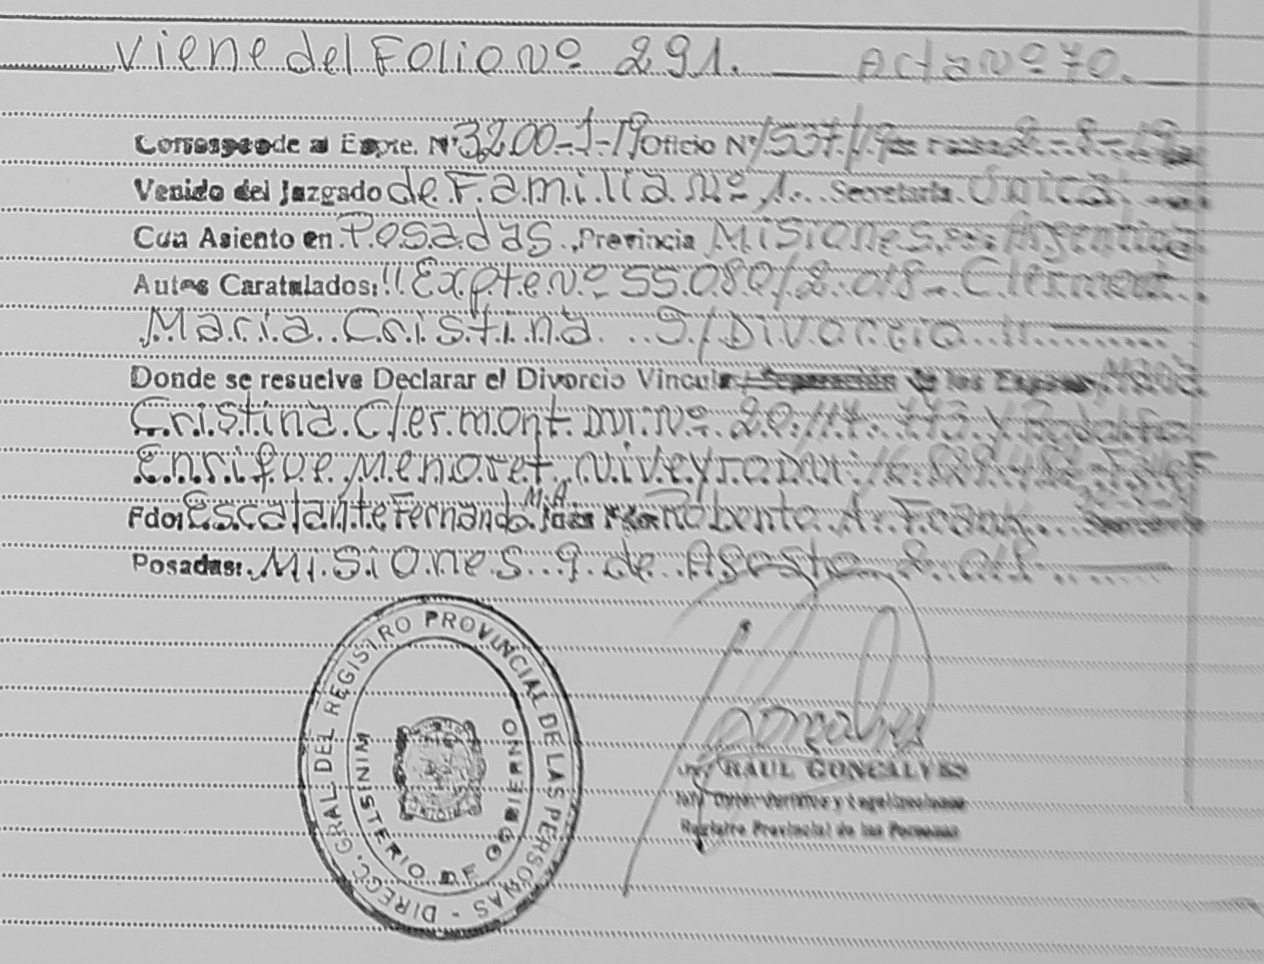 Viene del Folio Nº 291. Acta Nº 70.
Corresponde al Expte. Nº 3200-1-19 Oficio Nº 1537/19 de Fecha 2-8-19
Venido del Juzgado de Familia Nº 1. Secretaria Única
Con Asiento en Posadas, Provincia Misiones Argentina
Autos Caratulados: "Expte Nº 55080/2018 - Clermont
María Cristina S/Divorcio"
Donde se resuelve Declarar el Divorcio Vincular Separación de los Esposos María
Cristina Clermont DNI Nº 20.117.773 y Rodolfo
Enrique Menoret Niveyro DNI 16.829.482
Fdo: Escalante Fernando M.A. Juez Roberto A. Frank Secretario
Posadas: Misiones 9 de Agosto 2018
DIRECC. GRAL DEL REGISTRO PROVINCIAL DE LAS PERSONAS
MINISTERIO DE GOBIERNO
Goncalves
RAUL GONCALVES
Jurídico y Legalizaciones
Registro Provincial de las Personas